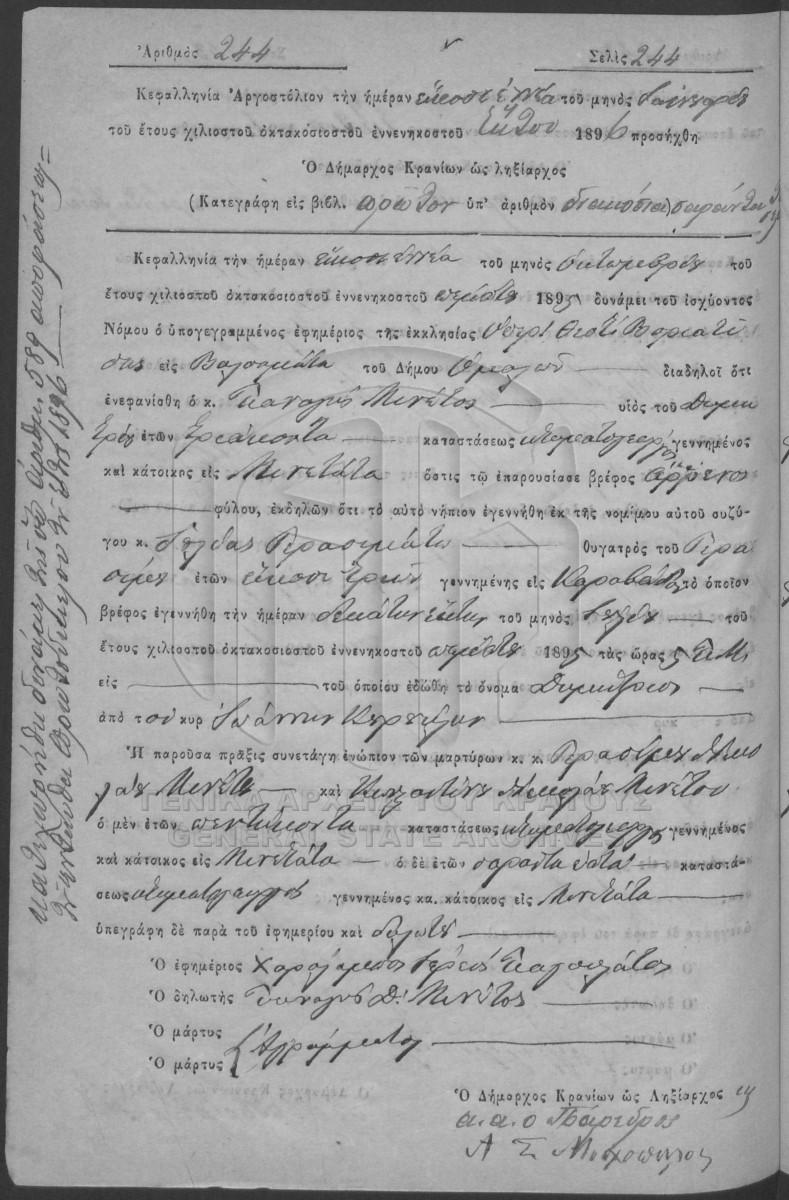 Ἀριθμὸς 244 Σελὶς 244
Κεφαλληνία Ἀργοστόλιον τὴν ἡμέραν εἴκοσι ἑπτα τοῦ μηνὸς
τοῦ ἔτους χιλιοστοῦ ὀκτακοσιοστοῦ ἐννενηκοστοῦ ἕκτου 1896 προσήχθη
Ὁ Δήμαρχος Κρανίων ὡς ληξίαρχος
(Κατεγράφη εἰς βιβλ. πρῶτον ὑπ' ἀριθμὸν διακόσια σαράντα
Κεφαλληνία τὴν ἡμέραν εἴκοσι ἐννέα τοῦ μηνὸς Ὀκτωβρίου τοῦ
ἔτους χιλιοστοῦ ὀκτακοσιοστοῦ ἐννενηκοστοῦ πέμπτου 1895 δυνάμει τοῦ ἰσχύοντος
Νόμου ὁ ὑπογεγραμμένος ἐφημέριος τῆς ἐκκλησίας
εἰς Βαλσαμάτα τοῦ Δήμου Ὁμαλῶν διαδηλοῖ ὅτι
ἐνεφανίσθη ὁ κ. Παναγῆς Μινέτος υἱὸς τοῦ Δημη
τρίου ἐτῶν τριάκοντα καταστάσεως κτηματουργός γεννημένος
καὶ κάτοικος εἰς Μινετάτα ὅστις τῷ ἐπαρουσίασε βρέφος ἄρρενος
φύλου, ἐκδηλῶν ὅτι τὸ αὐτὸ νήπιον ἐγεννήθη ἐκ τῆς νομίμου αὐτοῦ συζύ-
γου κ. θυγατρὸς τοῦ Γερα
σίμου ἐτῶν εἴκοσι τριῶν γεννημένης εἰς Καραβάδο τὸ ὁποῖον
βρέφος ἐγεννήθη τὴν ἡμέραν δεκάτην ἕκτην τοῦ μηνὸς τοῦ
ἔτους χιλιοστοῦ ὀκτακοσιοστοῦ ἐννενηκοστοῦ πέμπτου 1895 τὰς ὥρας 5 Π.Μ.
εἰς τοῦ ὁποίου ἐδώθη τὸ ὄνομα Δημήτριος
ἀπὸ τὸν κυρ Ἰωάννην
Ἡ παροῦσα πρᾶξις συνετάγη ἐνώπιον τῶν μαρτύρων κ. κ. Γερασίμου Νικο
λάου Μινέτου καὶ Κωνσταντίνου Νικολάου Μινέτου
ΓΕΝΙΚΑ ΑΡΧΕΙΑ ΤΟΥ ΚΡΑΤΟΥΣ
ὁ μὲν ἐτῶν πεντήκοντα καταστάσεως κτηματουργός γεννημένος
GENERAL STATE ARCHIVES
καὶ κάτοικος εἰς Μινετάτα ὁ δὲ ἐτῶν σαράντα ἑπτά καταστά-
σεως κτηματουργός γεννημένος κα. κάτοικος εἰς Μινετάτα
ὑπεγράφη δὲ παρὰ τοῦ ἐφημερίου καὶ δηλωτοῦ
Ὁ ἐφημέριος Χαράλαμπος Ἱερεύς
Ὁ δηλωτὴς Παναγῆς Δ. Μινέτος
Ὁ μάρτυς
Ὁ μάρτυς { Ἀγράμματοι
Ὁ Δήμαρχος Κρανίων ὡς Ληξίαρχος
α.α.ο Πάρεδρος
Α Σ
Κατεχωρήθη δυνάμει τῆς ὑπ' ἀριθμ. 589 ἀποφάσεως
τῶν ἐνταῦθα Πρωτοδικῶν τοῦ ἔτους 1896